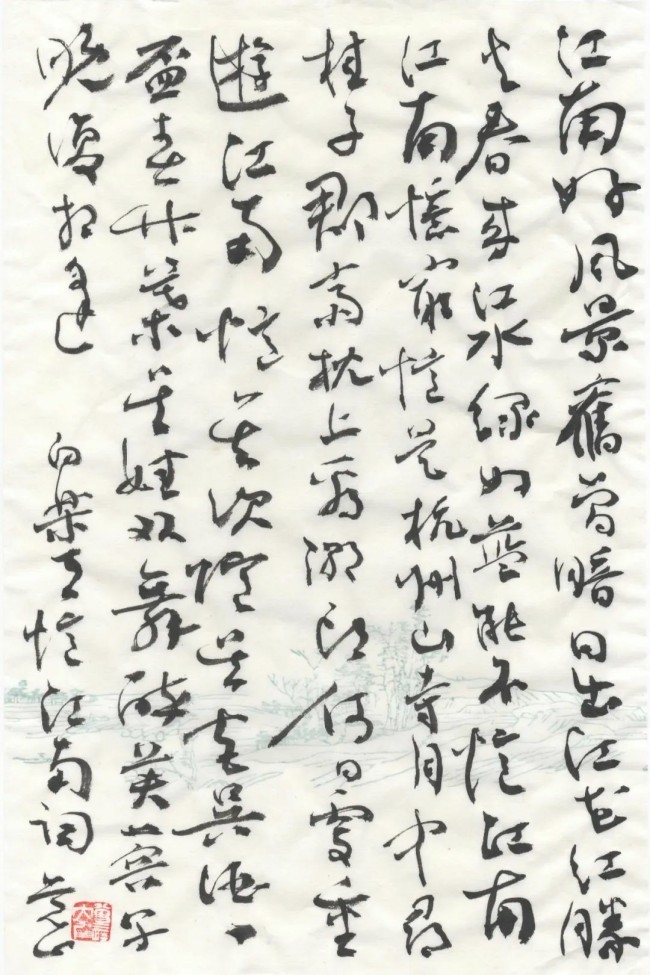 江南好风景舊曾暗日出江花红勝
火春来江水绿如蓝能不忆江南
江南憶最忆是杭州山寺月中尋
桂子郡亭枕上看潮头何日更重
遊江南忆其次憶吴宫吴酒一
盃春竹葉吴娃双舞醉芙蓉早
晚復相逢
白樂天忆江南词